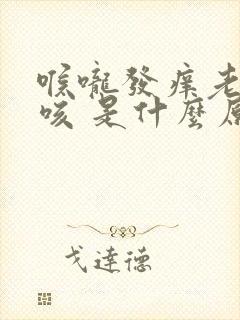 喉嚨發癢老
咳是什麼原
戈達德